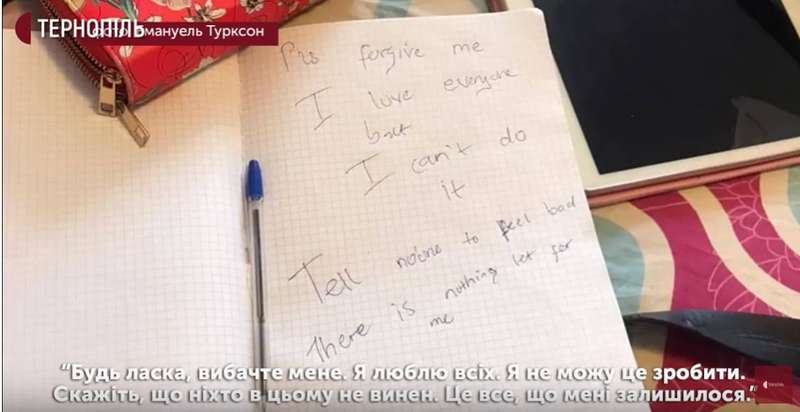 ТЕРНОПІЛЬ
фото: Емануель Турксон
Pls forgive me
I love everyone
but
I can't do
it
Tell noone to feel bad
There is nothing let for
me
"Будь ласка, вибачте мене. Я люблю всіх. Я не можу це зробити.
Скажіть, що ніхто в цьому не винен. Це все, що мені залишилося."